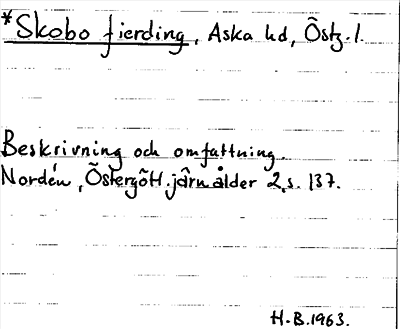 *Skobo fierding, Aska hd, Östg. l.
Beskrivning och omfattning.
Nordén, Östergötl. järnålder 2, s. 137.
H.B. 1963.